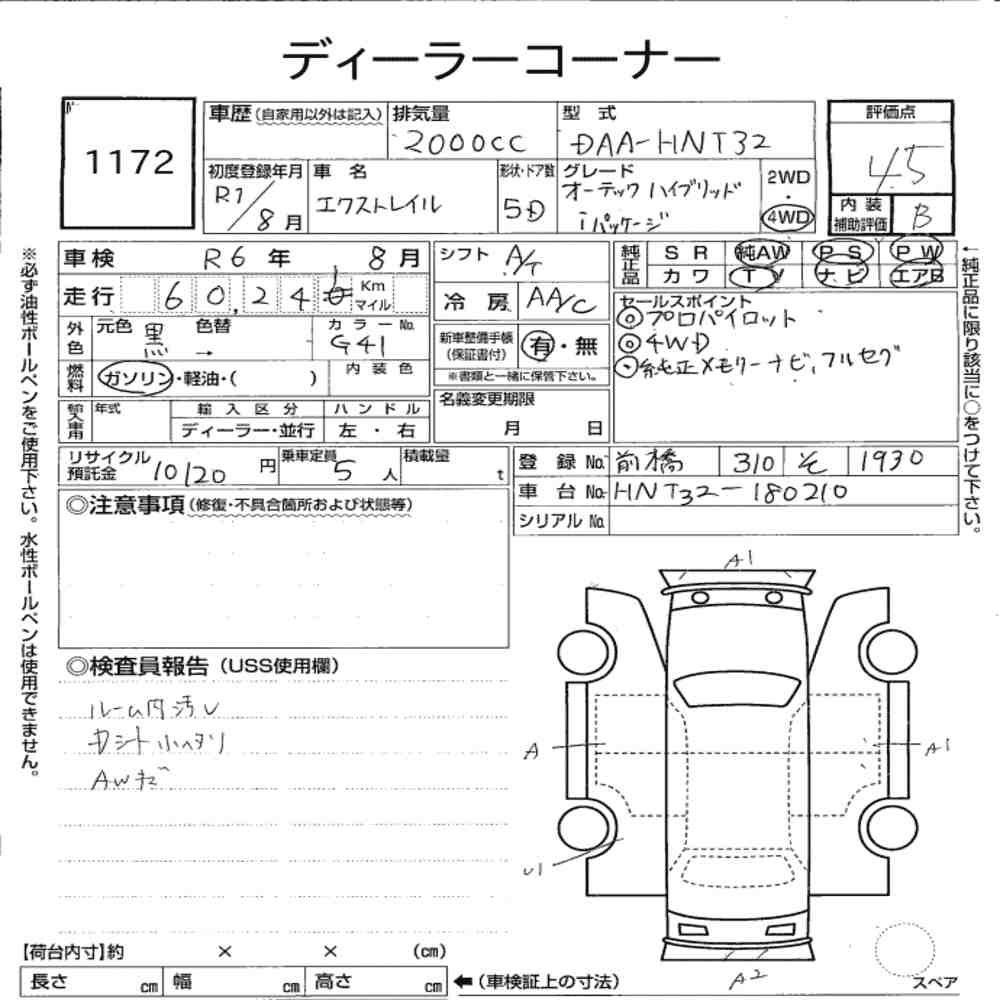 ディーラーコーナー
1172
車歴(自家用以外は記入)
排気量
2000cc
型 式
DAA-HNT32
評価点
4.5
内 装
補助評価
B
初度登録年月
R1/8月
車 名
エクストレイル
形状・ドア数
5D
グレード
オーテック ハイブリッド
iパッケージ
2WD
・
4WD
車検 R6年 8月
走行 60,246 Km
マイル
シフト A/T
冷 房 AA/C
純正品
SR 純AW PS PW
カワ TV ナビ エアB
外色
元色 黒 色替 →
カラーNo.
G41
燃料
ガソリン・軽油・( )
内 装 色
新車整備手帳
(保証書付)
有・無
※書類と一緒に保管下さい。
名義変更期限
月 日
セールスポイント
◎プロパイロット
◎4WD
◎純正メモリーナビ, フルセグ
輸入車用
年式
輸 入 区 分
ディーラー・並行
ハ ン ド ル
左 ・ 右
リサイクル
預託金 10120 円
乗車定員 5 人
積載量 t
登 録 No. 前橋 310 そ 1930
車 台 No. HNT32-180210
シリアル No.
◎注意事項(修復・不具合箇所および状態等)
◎検査員報告(USS使用欄)
ルーム内汚レ
カシト小ヘタリ
AWキズ
A1
A
A1
U1
A2
スペア
【荷台内寸】約 × × (cm)
長さ cm 幅 cm 高さ cm
←(車検証上の寸法)
※必ず油性ボールペンをご使用下さい。水性ボールペンは使用できません。
←純正品に限り該当に○をつけて下さい。